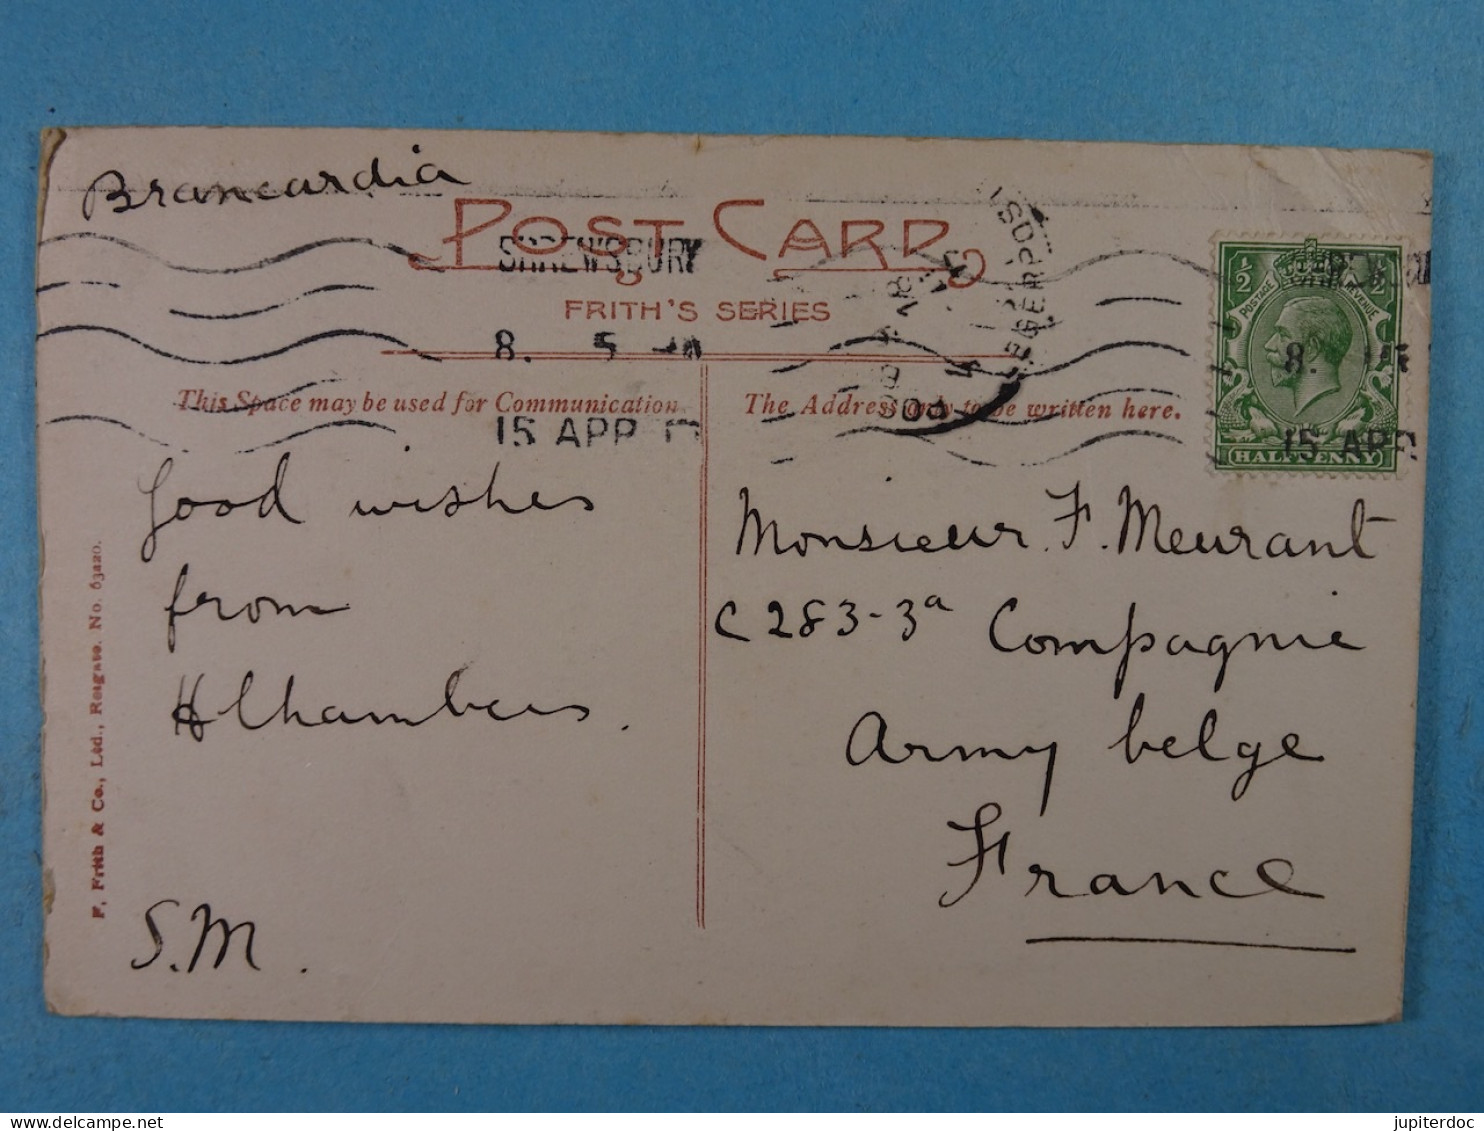 Brancardia
POST CARD
SHREWSBURY
FRITH'S SERIES
8. 5
15 APR 17
This Space may be used for Communication.
The Address to be written here.
1/2
POSTAGE
REVENUE
HALFPENNY
8.
15 APR
Good wishes
from
Alhambers.
S.M.
Monsieur. F. Meurant
C283-3a Compagnie
Army belge
France
F. Frith & Co., Ltd., Reigate. No. 63220.
jupiterdoc